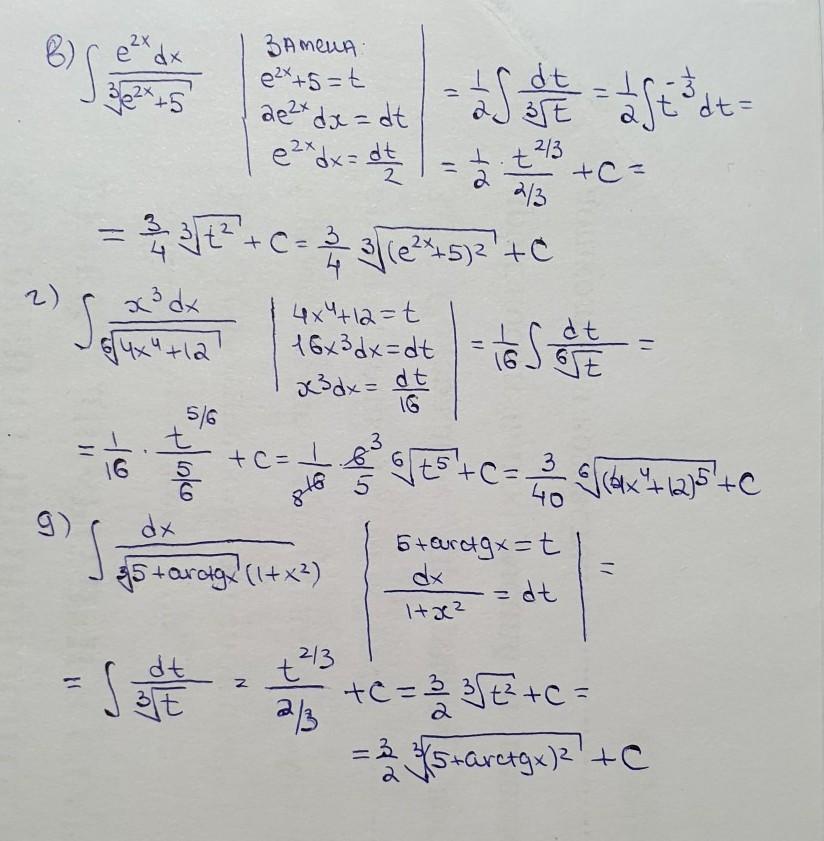 в) ∫ e^{2x}dx / ∛(e^{2x}+5) | Замена: e^{2x}+5=t 2e^{2x}dx=dt e^{2x}dx=dt/2 | = 1/2 ∫ dt/∛t = 1/2 ∫ t^{-1/3} dt =
= 1/2 · t^{2/3} / 2/3 + C =
= 3/4 ∛(t²) + C = 3/4 ∛((e^{2x}+5)²) + C
г) ∫ x³dx / ⁶√(4x⁴+12) | 4x⁴+12=t 16x³dx=dt x³dx=dt/16 | = 1/16 ∫ dt/⁶√t =
= 1/16 · t^{5/6} / 5/6 + C = 1/16 8 · 6 3/5 ⁶√(t⁵) + C = 3/40 ⁶√((4x⁴+12)⁵) + C
g) ∫ dx / ∛(5+arctgx) (1+x²) | 5+arctgx=t dx/1+x² = dt | =
= ∫ dt/∛t = t^{2/3} / 2/3 + C = 3/2 ∛(t²) + C =
= 3/2 ∛((5+arctgx)²) + C